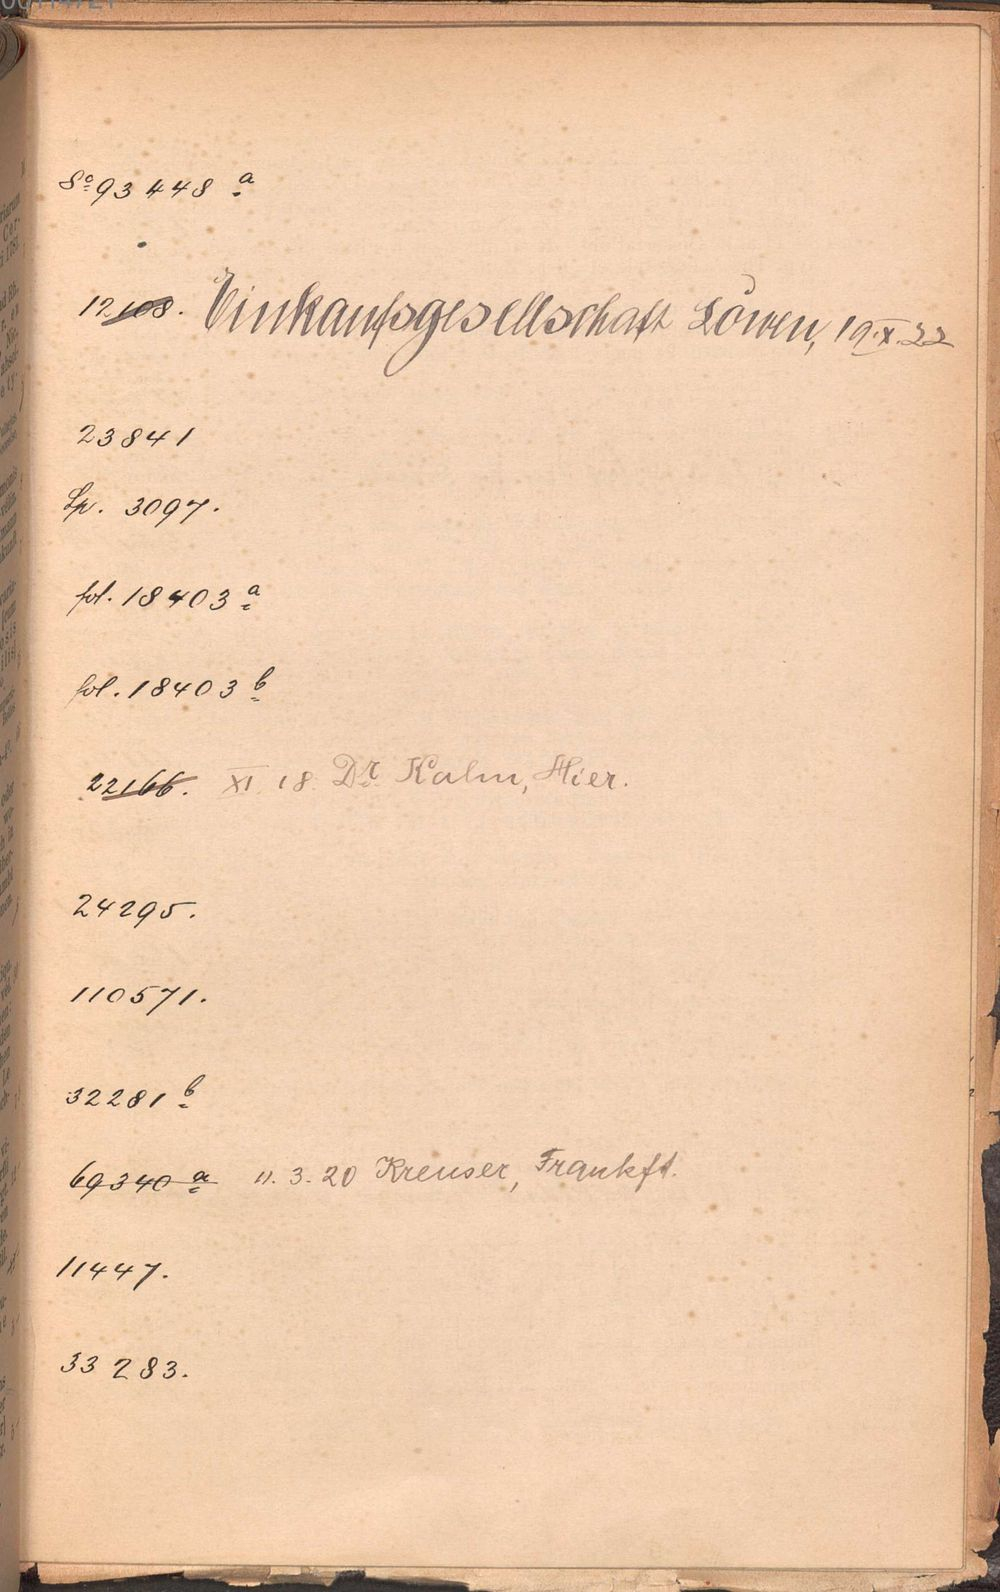 8º 93448 a
12108. Einkaufsgesellschaft Löwen, 19.X.22
23841
Sp. 3097.
fol. 18403 a
fol. 18403 b
22166. XI 18 Dr. Kahn, Hier.
24295.
110571.
32281 b
69340 a 11. 3. 20 Kreuser, Frankft.
11447.
33283.